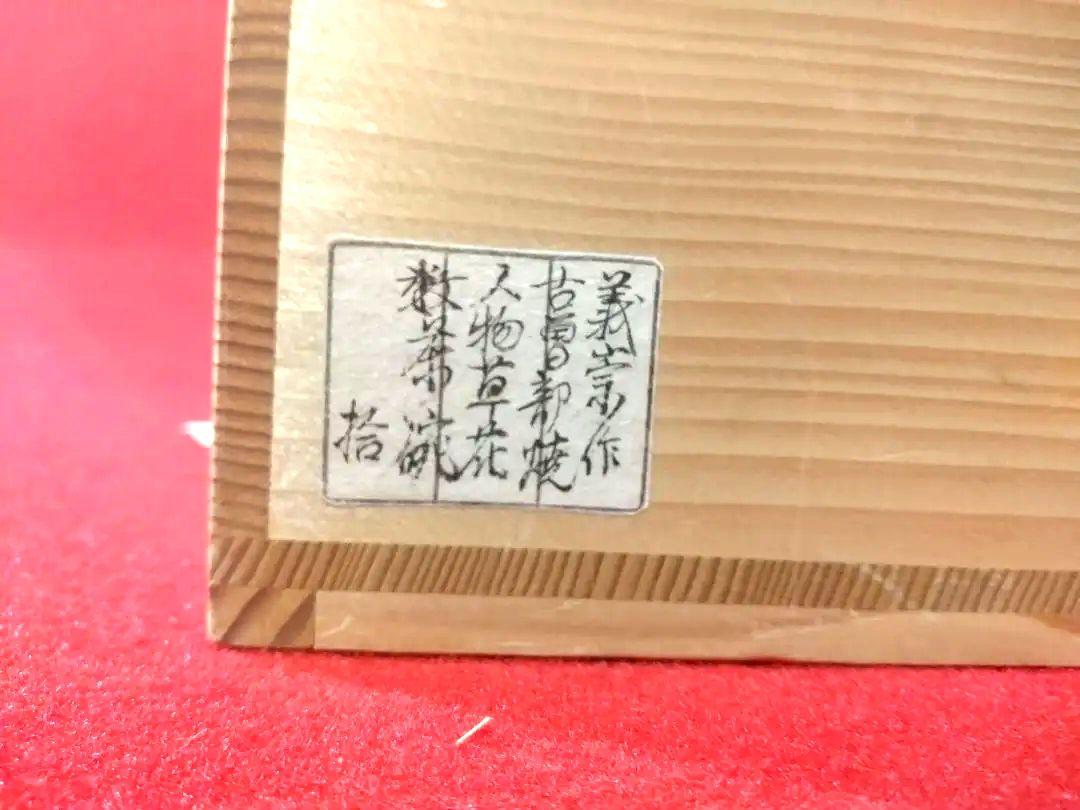 義崇作
古曽部焼
人物草花
数茶碗
拾